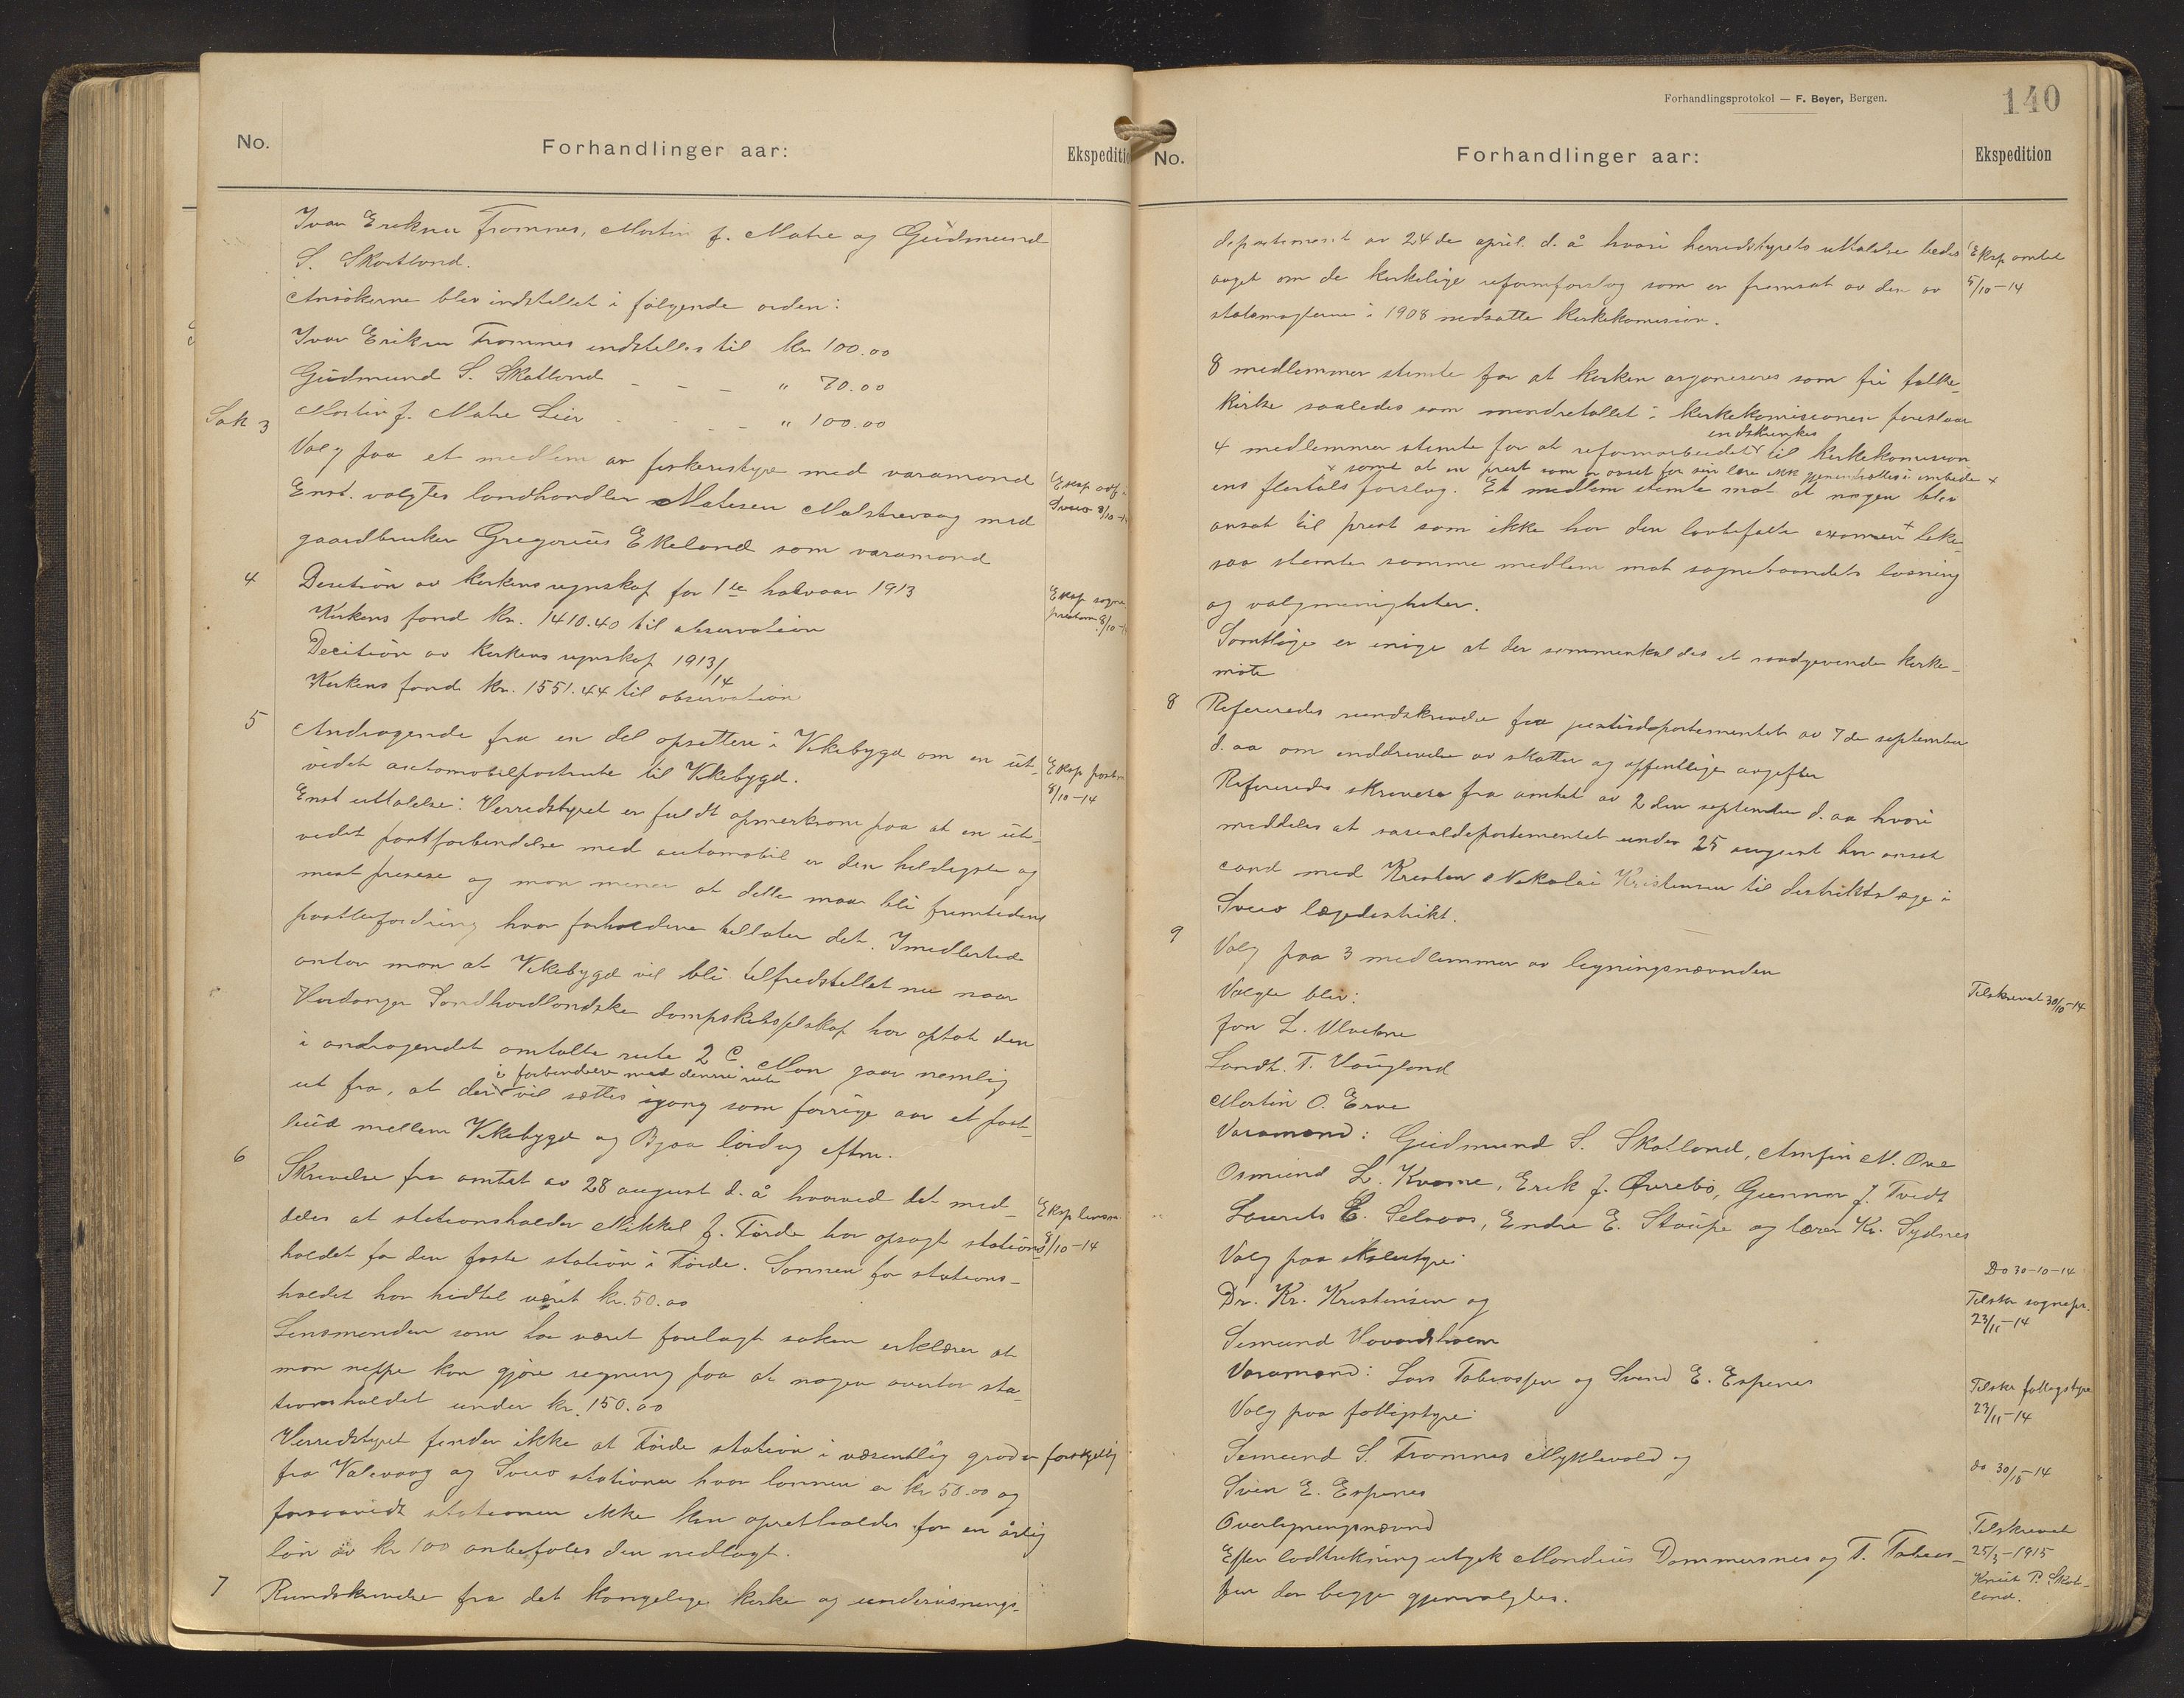 No.
Forhandlinger aar:
Ekspediti
Ivar Eriksen Tromnes, Martin J. Matre og Gudmund
S. Skartland.
Ansökerne blev indstillet i fölgende orden:
Ivar Eriksen Tromnes indstilles til kr 100.00
Gudmund S. Skotland - - - " 70.00
Martin J. Matre Lier - - - " 100.00
Sak 3
Valg paa et medlem av fiskeristyre med varamand
Enst. valgtes landhandler Matesen Malstrevaag med
gaardbruker Gregorius Ekeland som varamand
Eksp
Sveio 8/10-1
4
Decition av kirkens regnskap for 1ste halvaar 1913
Kirkens fond kr. 1410.40 til observation
Decition av kirkens regnskap 1913/14
Kirkens fond kr. 1551.44 til observation
Eksp sogne
presten 8/10-1
5
Andragende fra en del opsittere i Vikebygd om en ut-
videt automobilpostrute til Vikebygd.
Eksp postm
8/10-14
Enst uttalelse: Herredstyret er fuldt opmerksom paa at en ut-
videt postforbindelse med automobil er den heldigste og
mest presise og man mener at dette maa bli fremtidens
postbefordring hvor forholdene tillater det. Imidlertid
antar man at Vikebygd vil bli tilfredstillet nu naar
Hardanger Sondhordlandske dampskibsselskap har optat den
i andragendet omtalte rute 2 C. Man gaar nemlig
i forbindelse med denne rute
ut fra, at der vil sættes igang som forrige aar et post-
bud mellem Vikebygd og Bjoa lördag eftm.
6
Skrivelse fra amtet av 28 august d. å hvorved det med-
deles at stationsholder Mikkel J. Förde har opsagt stations-
holdet for den faste station i Förde. Lønnen for stations-
holdet har hidtil været kr. 50.00
Eksp lensm.
8/10-14
Lensmanden som har været forelagt saken erklærer at
man neppe kan gjøre regning paa at nogen overtar sta-
tionsholdet under kr. 150.00
Herredstyret finder ikke at Förde station i væsentlig grad er forskjellig
fra Valevaag og Sveio stationer hvor lønnen er kr 50.00 og
forsaavidt stationen ikke kan opretholdes for en årlig
løn av kr 100 anbefales den nedlagt.
7
Rundskrivelse fra det kongelige kirke og undervisnings-
Forhandlingsprotokol — F. Beyer, Bergen.
140
No.
Forhandlinger aar:
Ekspedition
departement av 24de april d. å hvori herredstyrets uttalelse bedes
avget om de kirkelige reformforslag som er fremsat av den av
statsmagterne i 1908 nedsatte kirkekomision.
Eksp amtet
5/10-14
8 medlemmer stemte for at kirken organiseres som fri folke-
kirke saaledes som mindretallet i kirkekomisionen foreslaar
indskrenkes
4 medlemmer stemte for at reformarbeidet til kirkekomision
x samt at en prest som er avsat for sin lære ikke gjenindsættes i embede x
ens flertals forslag. Et medlem stemte mot at nogen blev
ansat til prest som ikke har den lovbefalte examen + like-
saa stemte samme medlem mot sognebaandets løsning
og valgmenigheter.
Samtlige er enige at der sammenkaldes et raadgivende kirke-
møte
8
Refereredes rundskrivelse fra justisdepartementet av 7de september
d. aa om inddrivelse av skatter og offentlige avgifter
Refereredes skrivelse fra amtet av 2den september d. aa hvori
meddeles at socialdepartementet under 25 august har ansat
cand med Kristen Nikolai Kristensen til distriktslæge i
Sveio lægedistrikt.
9
Valg paa 3 medlemmer av ligningsnævnden
Valgte blev:
Tilskrevet 30/10-14
Jon L. Ulveraa
Landh. T. Haugland
Martin O. Erve
Varamænd: Gudmund S. Skotland, Amfin M. Ove
Osmund L. Kvame, Erik J. Øvrebö, Gunnar J. Tvedt
Laurits E. Selvaas, Endre E. Staupe og lærer Kr. Sydnes
Valg paa skolestyre:
Do 30-10-14
Dr. Kr. Kristensen og
Tilskr sognepr.
23/11-14
Semund Hovardsholm
Varamænd: Lars Tobiassen og Svend E. Espenes
Valg paa fattigstyre:
Tilskr fattigstyre
23/11-14
Semund S. Tromnes Myklevold og
Svein E. Espenes
do 30/10-14
Overligningsnævnd
Efter lodtrækning utgik Mandius Dommersnes og T. Tobias-
sen der begge gjenvalgtes.
Tilskrevet
25/3-1915
Knut P. Skot-
land.